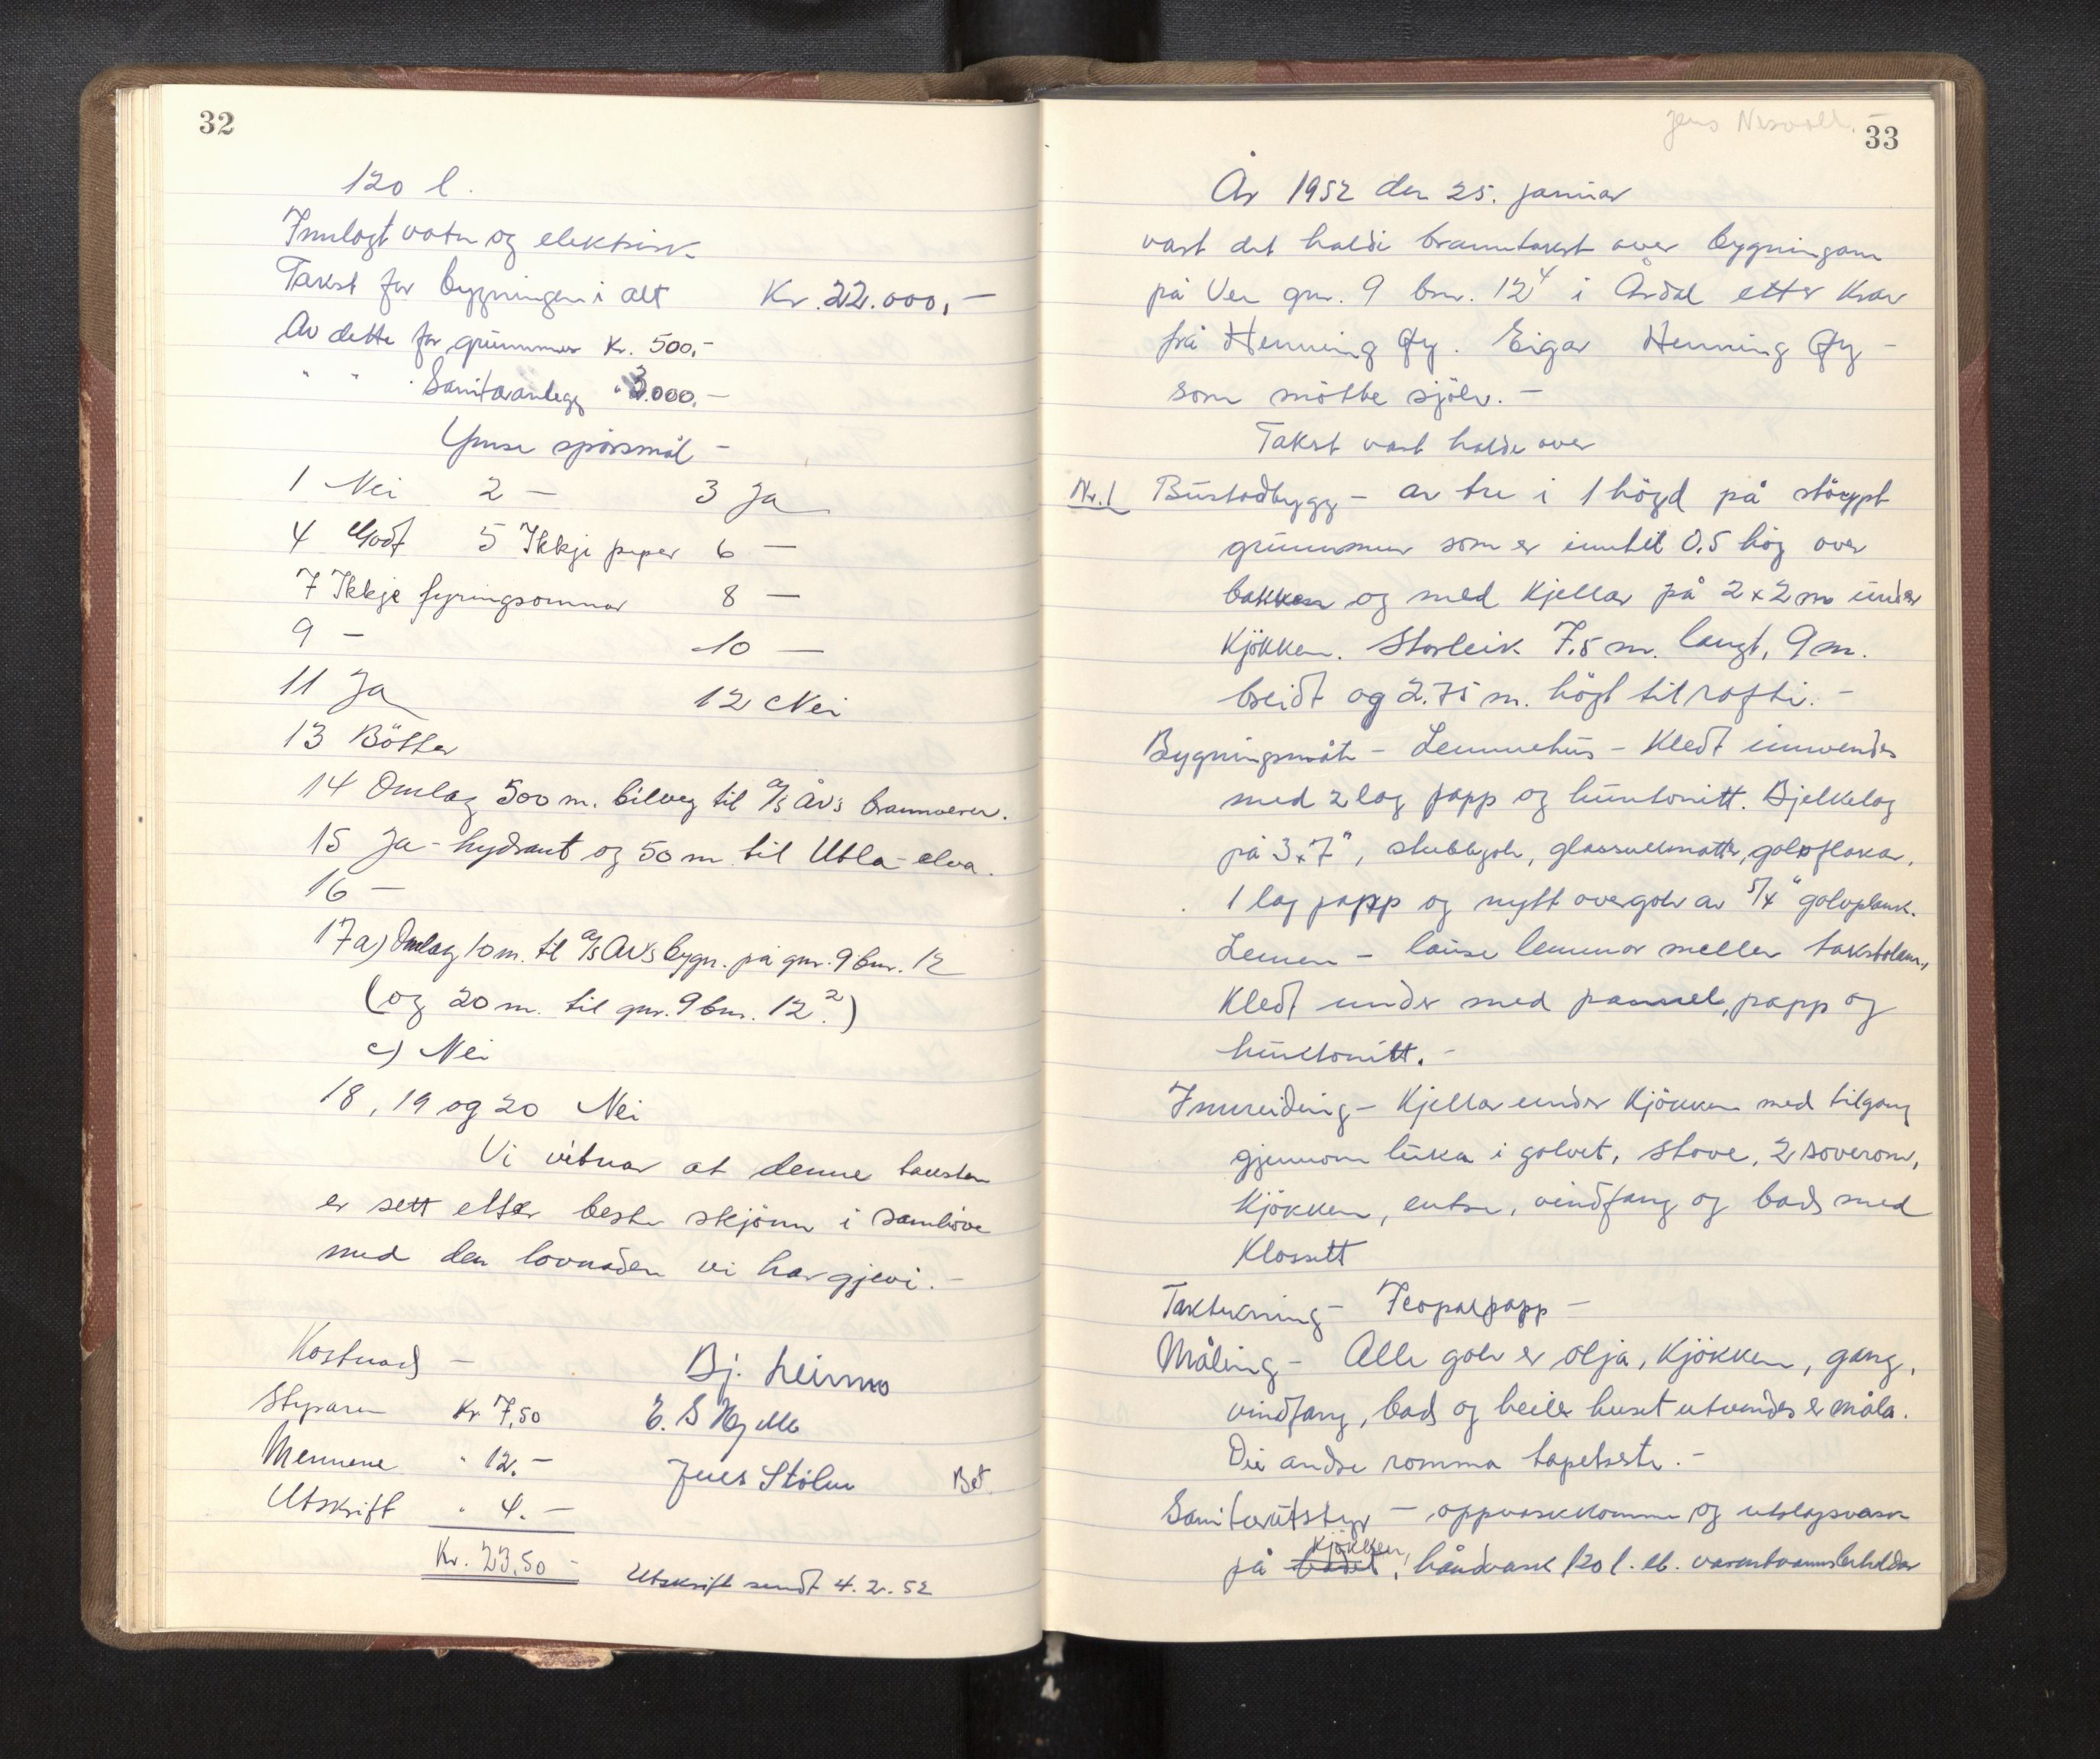 32
120 l.
Innlagt vatn og elektrisk.
Takst for bygningen i alt Kr. 22.000,-
Av dette for grunnmur Kr. 500,-
" " " Sanitæranlegg " 3.000,-
Ymse spörsmål -
1 Nei 2 - 3 Ja
4 Godt 5 Ikkje piper 6 -
7 Ikkje fyringsomnar 8 -
9 - 10 -
11 Ja 12 Nei
13 Bötter
14 Omlag 500 m. bilveg til a/s ÅV's brannvern.
15 Ja - hydrant og 50 m til Utla-elva.
16 -
17a) Omlag 10 m. til a/s ÅV's bygn. på gnr. 9 bnr. 12
(og 20 m. til gnr. 9 bnr. 12².)
c) Nei
18, 19 og 20 Nei
Vi vitnar at denne taksten
er sett etter beste skjönn i samhöve
med den lovnaden vi har gjevi. -
Kostnad -
Bj. Leirmo
Styraren Kr 7,50
E. S Hjelle
Mennene " 12.-
Jens Stölen Bet.
Utskrift " 4.-
Kr. 23,50 -
Utskrift sendt 4.2.52
Jens Nesvoll.
33
År 1952 den 25. januar
vart det haldi branntakst over bygningane
på Ven gnr. 9 bnr. 12⁴ i Årdal etter krav
frå Henning Øy. Eigar Henning Øy -
som mötte sjölv. -
Takst vart halde over
Nr. 1 Bustadbygg - av tre i 1 högd på stöypt
grunnmur som er inntil 0.5 hög over
bakken og med kjellar på 2 x 2 m under
kjökken. Storleik 7.5 m. langt, 9 m.
breidt og 2.75 m. högt til rafti. -
Bygningsmåte - Lemmehus - kledt innvendes
med 2 lag papp og huntonitt. Bjelkelag
på 3x7", stubbgolv, glassullmatter, golvflakar,
1 lag papp og nytt overgolv av 5/4" golvplank.
Lemen - lause lemmar mellem takstolane,
kledt under med pannel, papp og
huntonitt. -
Innreiding - Kjellar under kjökken med tilgang
gjennom luka i golvet, stove, 2 soverom,
kjökken, entre, vindfang og bad med
klosett
Taktekning - Icopalpapp -
Måling - Alle golv er olja, kjökken, gang,
vindfang, bad og heile huset utvendes er måla.
Dei andre romma tapetserte. -
Sanitærutstyr - oppvaskkomme og utslagsvask
på badet kjökken, håndvask 120 l. el. varmtvannsbeholdar